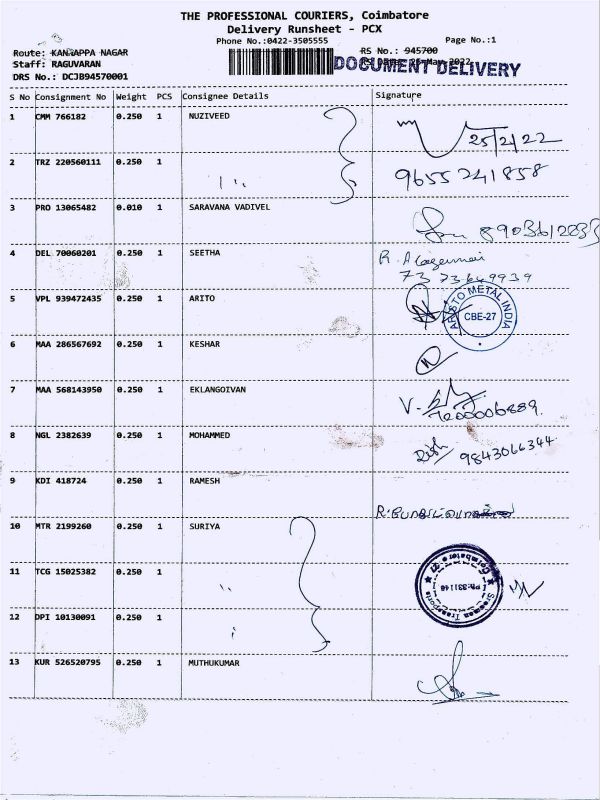 THE PROFESSIONAL COURIERS, Coimbatore
Delivery Runsheet - PCX
Phone No.:0422-3505555 Page No.:1
Route: KANGAPPA NAGAR RS No.: 945700
Staff: RAGUVARAN RS Date: 25-May-2022
DOCUMENT DELIVERY
DRS No.: DCJB94570001
S No Consignment No Weight PCS Consignee Details Signature
1 CMM 766182 0.250 1 NUZIVEED
25/2/22
2 TRZ 220560111 0.250 1 9655241858
3 PRO 13065482 0.010 1 SARAVANA VADIVEL
4 DEL 70060201 0.250 1 SEETHA
5 VPL 939472435 0.250 1 ARITO
ARISTO METAL INDIA
CBE-27
6 MAA 286567692 0.250 1 KESHAR
7 MAA 568143950 0.250 1 EKLANGOIVAN
V.
7200006889.
8 NGL 2382639 0.250 1 MOHAMMED
9843066344
9 KDI 418724 0.250 1 RAMESH
10 MTR 2199260 0.250 1 SURIYA
11 TCG 15025382 0.250 1
Sreeman Transports
Ph:331146
Coimbatore - 27
12 DPI 10130091 0.250 1
13 KUR 526520795 0.250 1 MUTHUKUMAR